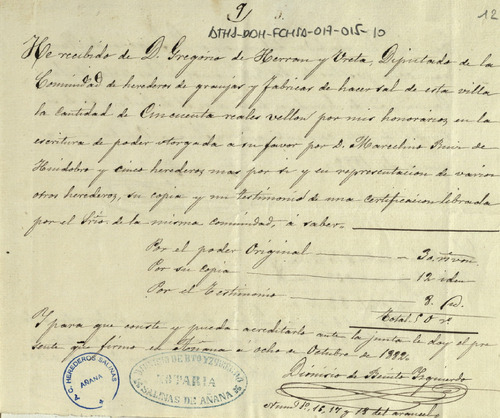 9
12
ATHA-DOH-FCHSA-017-015-10
He recibido de D. Gregorio de Herran y Ureta, Diputado de la
Comunidad de herederos de granjas y fabricas de hacer sal de esta villa
la cantidad de Cincuenta reales vellon por mis honorarios en la
escritura de poder otorgada á su favor por D. Marcelino Ruiz de
Huidobro y cinco herederos mas por si y en representacion de varios
otros herederos, su copia y un testimonio de una certificacion librada
por el Srio. de la misma comunidad, á saber.
Por el poder Original 30, rs. von.
Por su copia 12 idem
Por el Testimonio 8. id.
Total. 50 rs.
Y para que conste y pueda acreditarlo ante la junta le doy el pre
sente que firmo en Añana á ocho de Octubre de 1882.
Dionisio de Benito Izquierdo
Arans. 1º. 15, 17 y 18 del arancel
A.C. HEREDEROS SALINAS
AÑANA
NOTARIA
SALINAS DE AÑANA